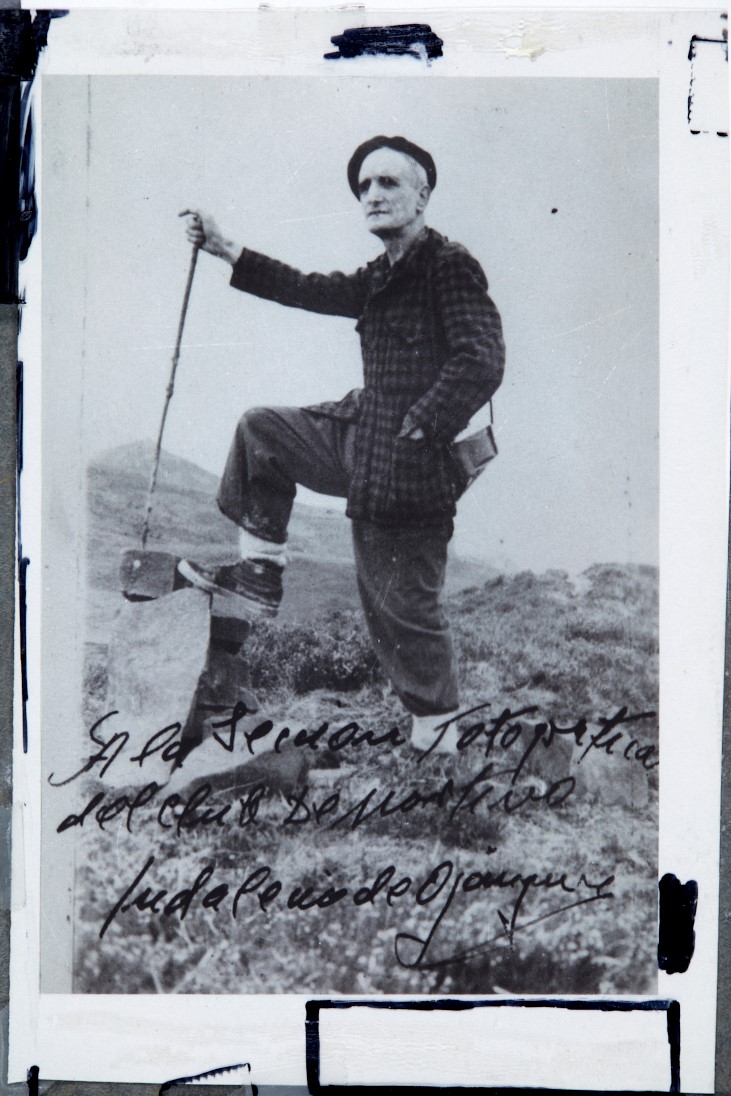 A la Seccion Fotografica
del Club Deportivo
Indalecio de Ojanguren